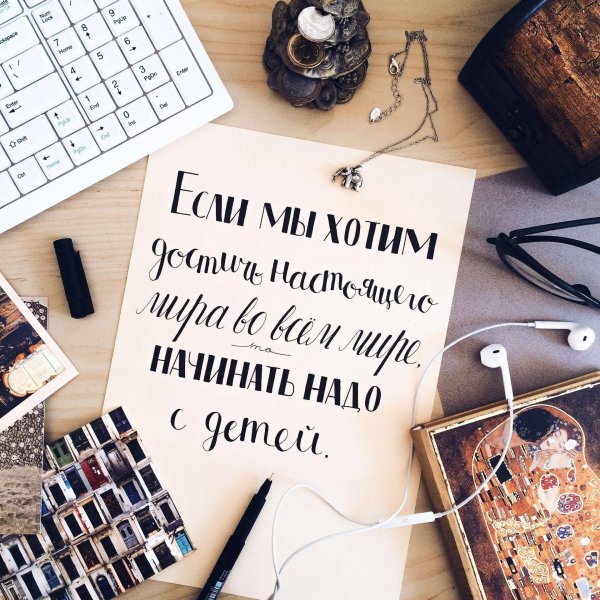 Если мы хотим
достичь настоящего
мира во всём мире,
то
начинать надо
с детей.
Num
Lock
Backspace
7
Home
8
9
PgUp
4
5
6
1
End
2
3
PgDn
0
Ins
Del
Enter
Enter
Shift
PgUp
Home
End
PgDn
Ctrl